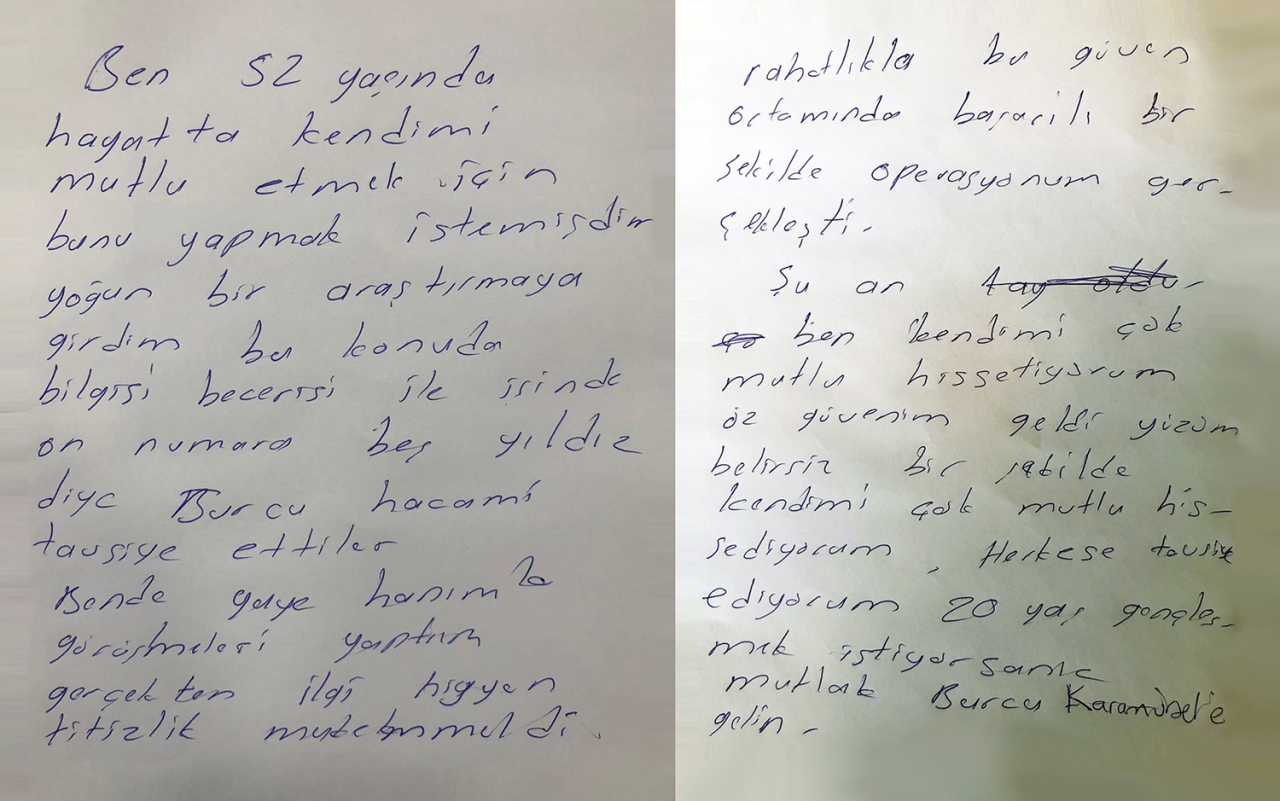 Ben 52 yaşında
hayatta kendimi
mutlu etmek için
bunu yapmak istemişdim
yoğun bir araştırmaya
girdim bu konuda
bilgisi becerisi ile işinde
on numara beş yıldız
diye Burcu hocamı
tavsiye ettiler
Bende gaye hanımla
görüşmeleri yaptım
gerçekten ilgi higyen
titizlik mukemmeldi.
rahatlıkla bu güven
ortamında başarılı bir
şekilde operasyonum ger-
çekleşti.
Şu an
ben kendimi çok
mutlu hissetiyorum
öz güvenim geldi yüzüm
belirsiz bir şekilde
kendimi çok mutlu his-
sediyorum, Herkese tavsiye
ediyorum 20 yaş gençleş-
mek istiyorsanız
mutlak Burcu Karamürsel'e
gelin.